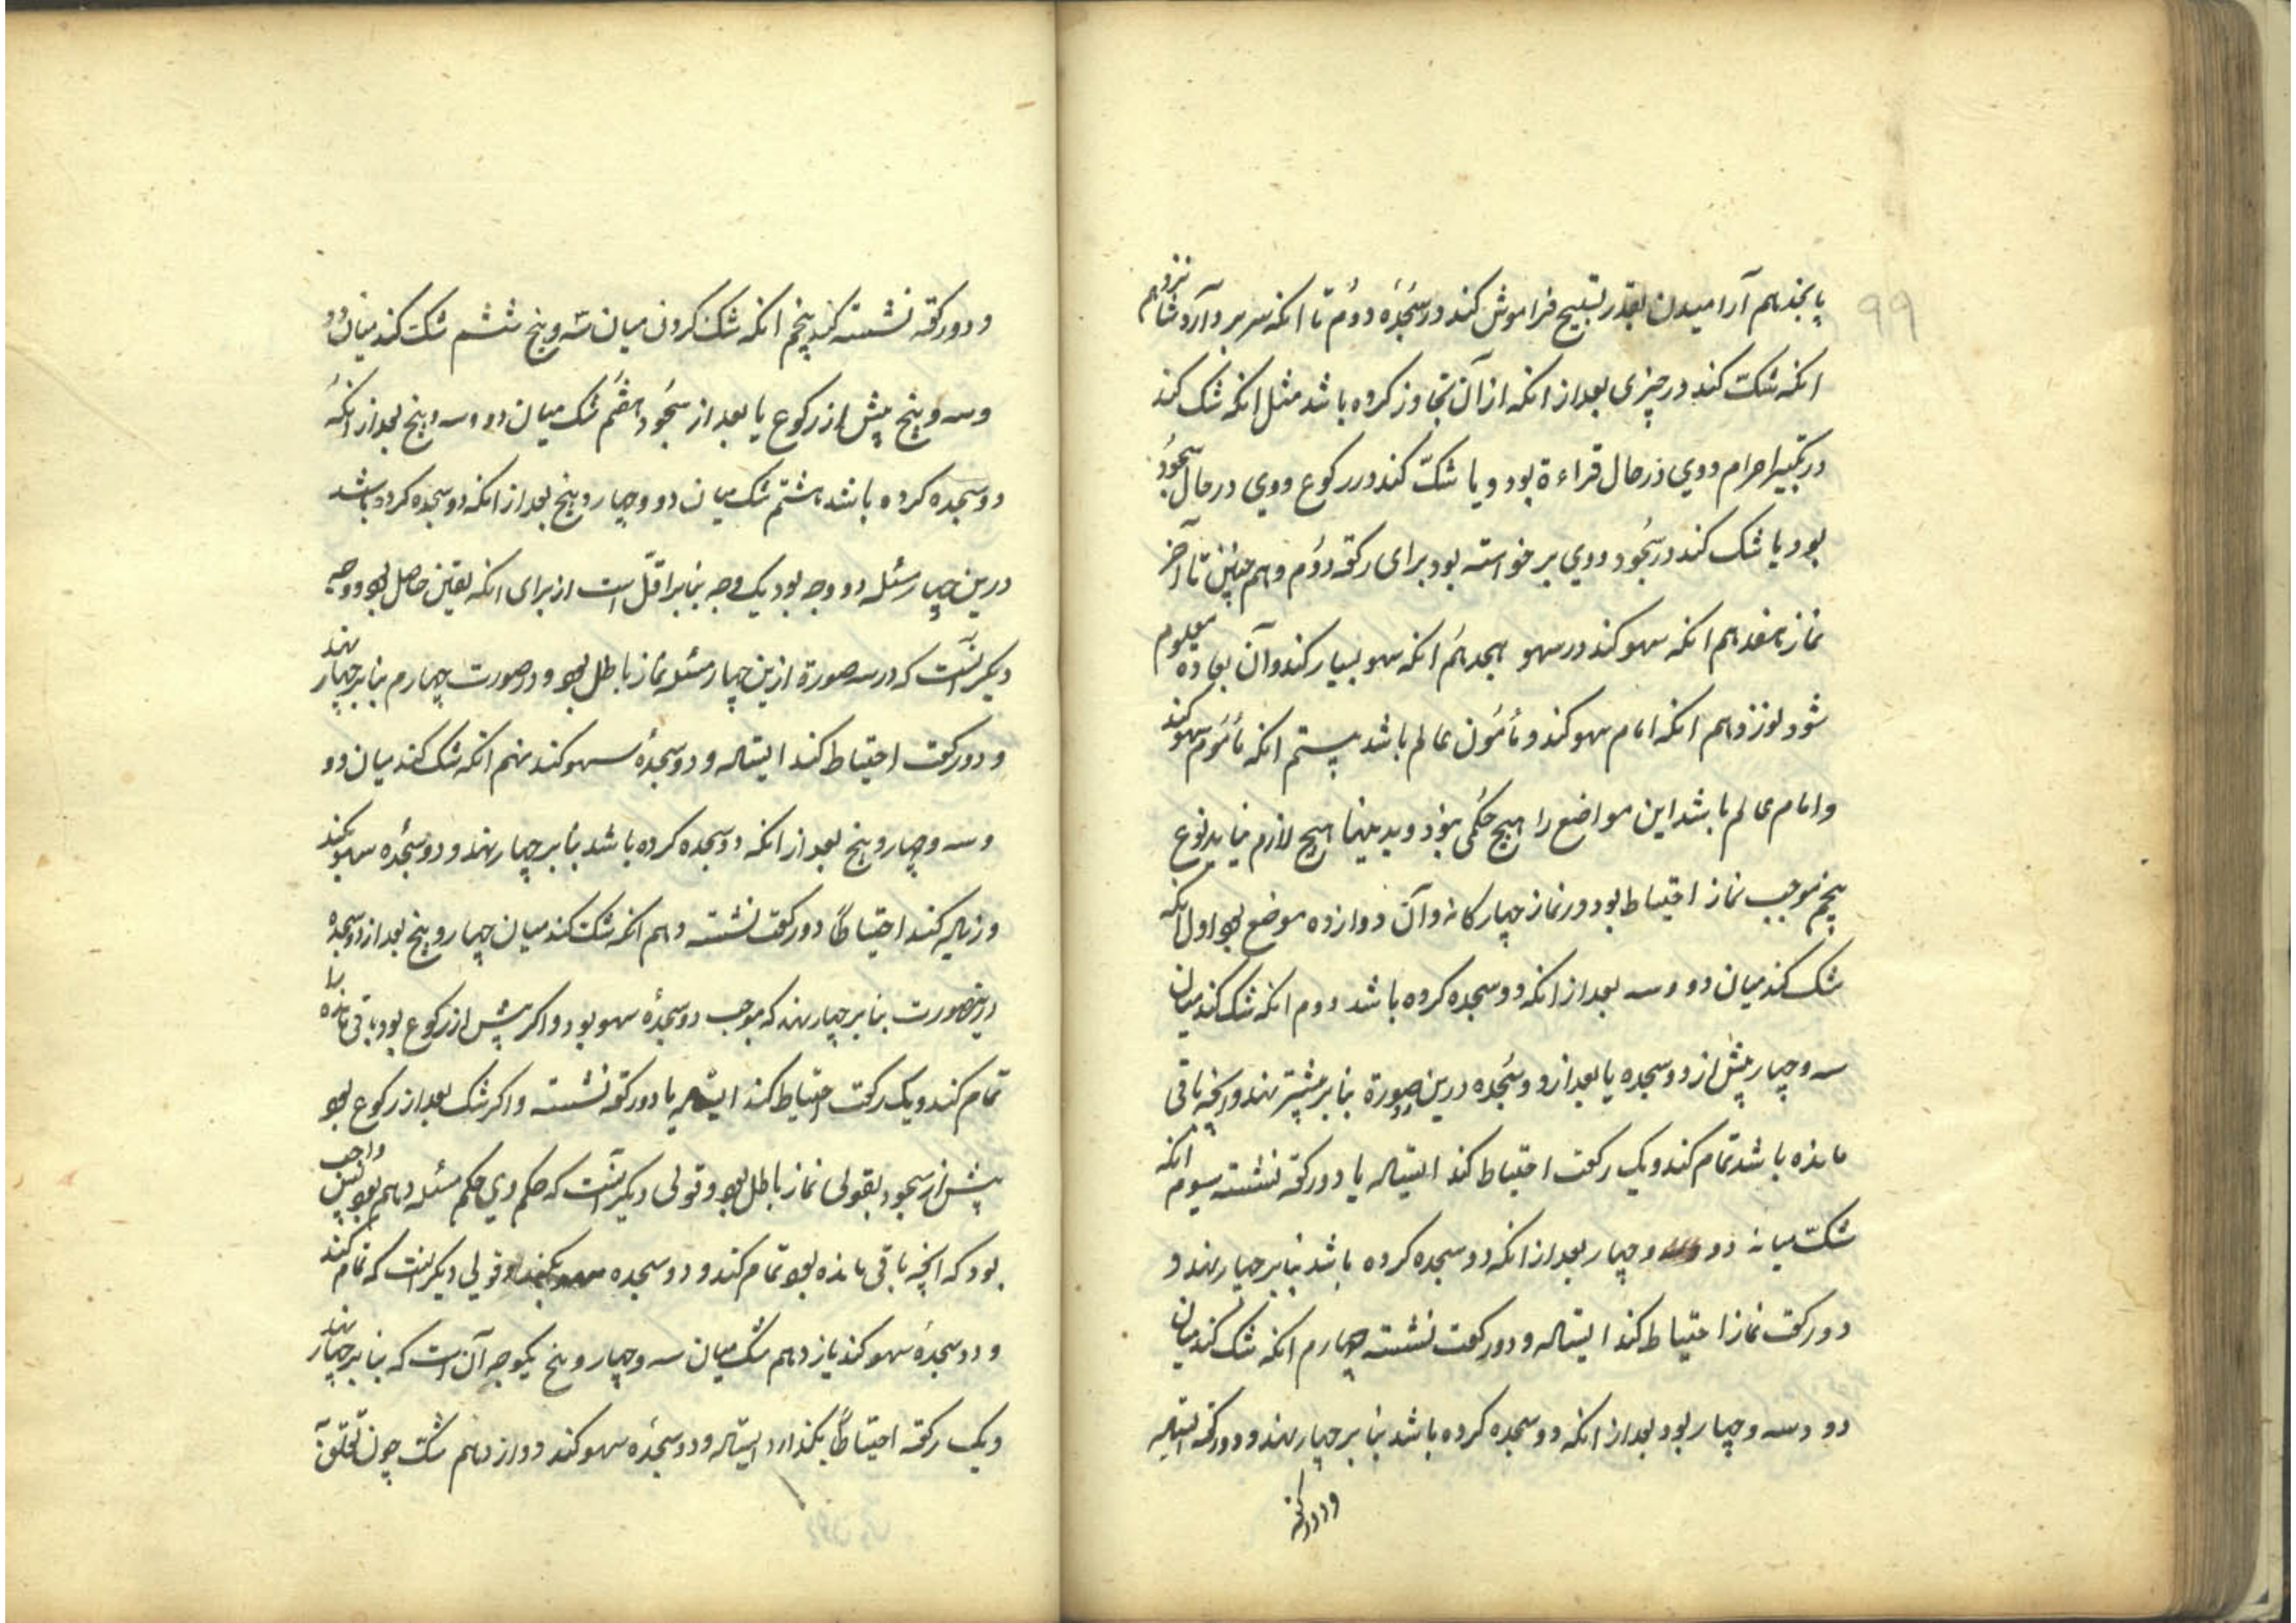 ۹۹
پانجدهم آرامیدن بقدر تسبیح فراموش کند در سجدۀ دوم تا انکه سر بردارد شانزدهم
انکه شکّ کند در چیزی بعد از انکه از آن تجاوز کرده باشد مثل انکه شک کند
در تکبیر احرام و وی در حال قراءة بود و یا شکّ کند در رکوع و وی در حال سجود
بود یا شک کند در سجود و وی برخواسته بود برای رکعة دوم و هم چنین تا آخر
نماز هفدهم انکه سهو کند در سهو هجدهم انکه سهو بسیار کند و آن بعاده معلوم
شود نوزدهم انکه امام سهو کند و مأمون عالم باشد بیستم انکه مأموم سهو کند
و امام عالم باشد این مواضع را هیچ حکمی نبود و بدینها هیچ لازم نیاید نوع
پنجم موجب نماز احتیاط بود در نماز چهار کانه و آن دوازده موضع بود اول انکه
شک کند میان دو و سه بعد از انکه دو سجده کرده باشد دوم انکه شک کند میان
سه و چهار پیش از دو سجده یا بعد از دو سجده درین صورة بنا بر بیشتر نهد و انچه باقی
مانده باشد تمام کند و یک رکعت احتیاط کند ایستاده یا دو رکعة نشسته سیوم انکه
شکّ میانه دو و چهار بعد از انکه دو سجده کرده باشد بنا بر چهار نهد و
دو رکعت نماز احتیاط کند ایستاده و دو رکعت نشسته چهارم انکه شک کند میان
دو و سه و چهار بود بعد از انکه دو سجده کرده باشد بنا بر چهار نهد و دو رکعة ایستاده
و دو رکعة
و دو رکعة نشسته کند پنجم انکه شک کردن میان سه و پنج ششم شک کند میان دو
و سه و پنج پیش از رکوع یا بعد از سجود هفتم شک میان دو و سه و پنج بعد از انکه
دو سجده کرده باشد هشتم شک میان دو و چهار و پنج بعد از انکه دو سجده کرده باشد
درین چهار مسئله دو وجه بود یک وجه بنا بر اقل است از برای انکه یقین حاصل بود و وجه
دیکر آنست که در سه صورة ازین چهار مسئله نماز باطل بود و در صورت چهارم بنا بر چهار نهد
و دو رکعت احتیاط کند ایستاده و دو سجدۀ سهو کند نهم انکه شک کند میان دو
و سه و چهار و پنج بعد از انکه دو سجده کرده باشد بنا بر چهار نهد و دو سجده سهو بکند
و زیاده کند احتیاطاً دو رکعت نشسته دهم انکه شک کند میان چهار و پنج بعد از دو سجدۀ
درینصورت بنا بر چهار نهد که موجب دو سجدۀ سهو بود و اکر پیش از رکوع بود باقی مانده را
تمام کند و یک رکعت احتیاط کند ایستاده یا دو رکعة نشسته و اکر شک بعد از رکوع بود
پیش از سجود بقولی نماز باطل بود و قولی دیکر آنست که حکم وی حکم مسئله دهم بود پس واجب
بود که انچه باقی مانده بود تمام کند و دو سجده سهو بکند و قولی دیکر انست که تمام کند
و دو سجدۀ سهو کند یازدهم شک میان سه و چهار و پنج یکوجه آن است که بنا بر چهار نهد
و یک رکعة احتیاطاً بکذارد ایستاده و دو سجدۀ سهو کند دوازدهم شک چون تعلق آن